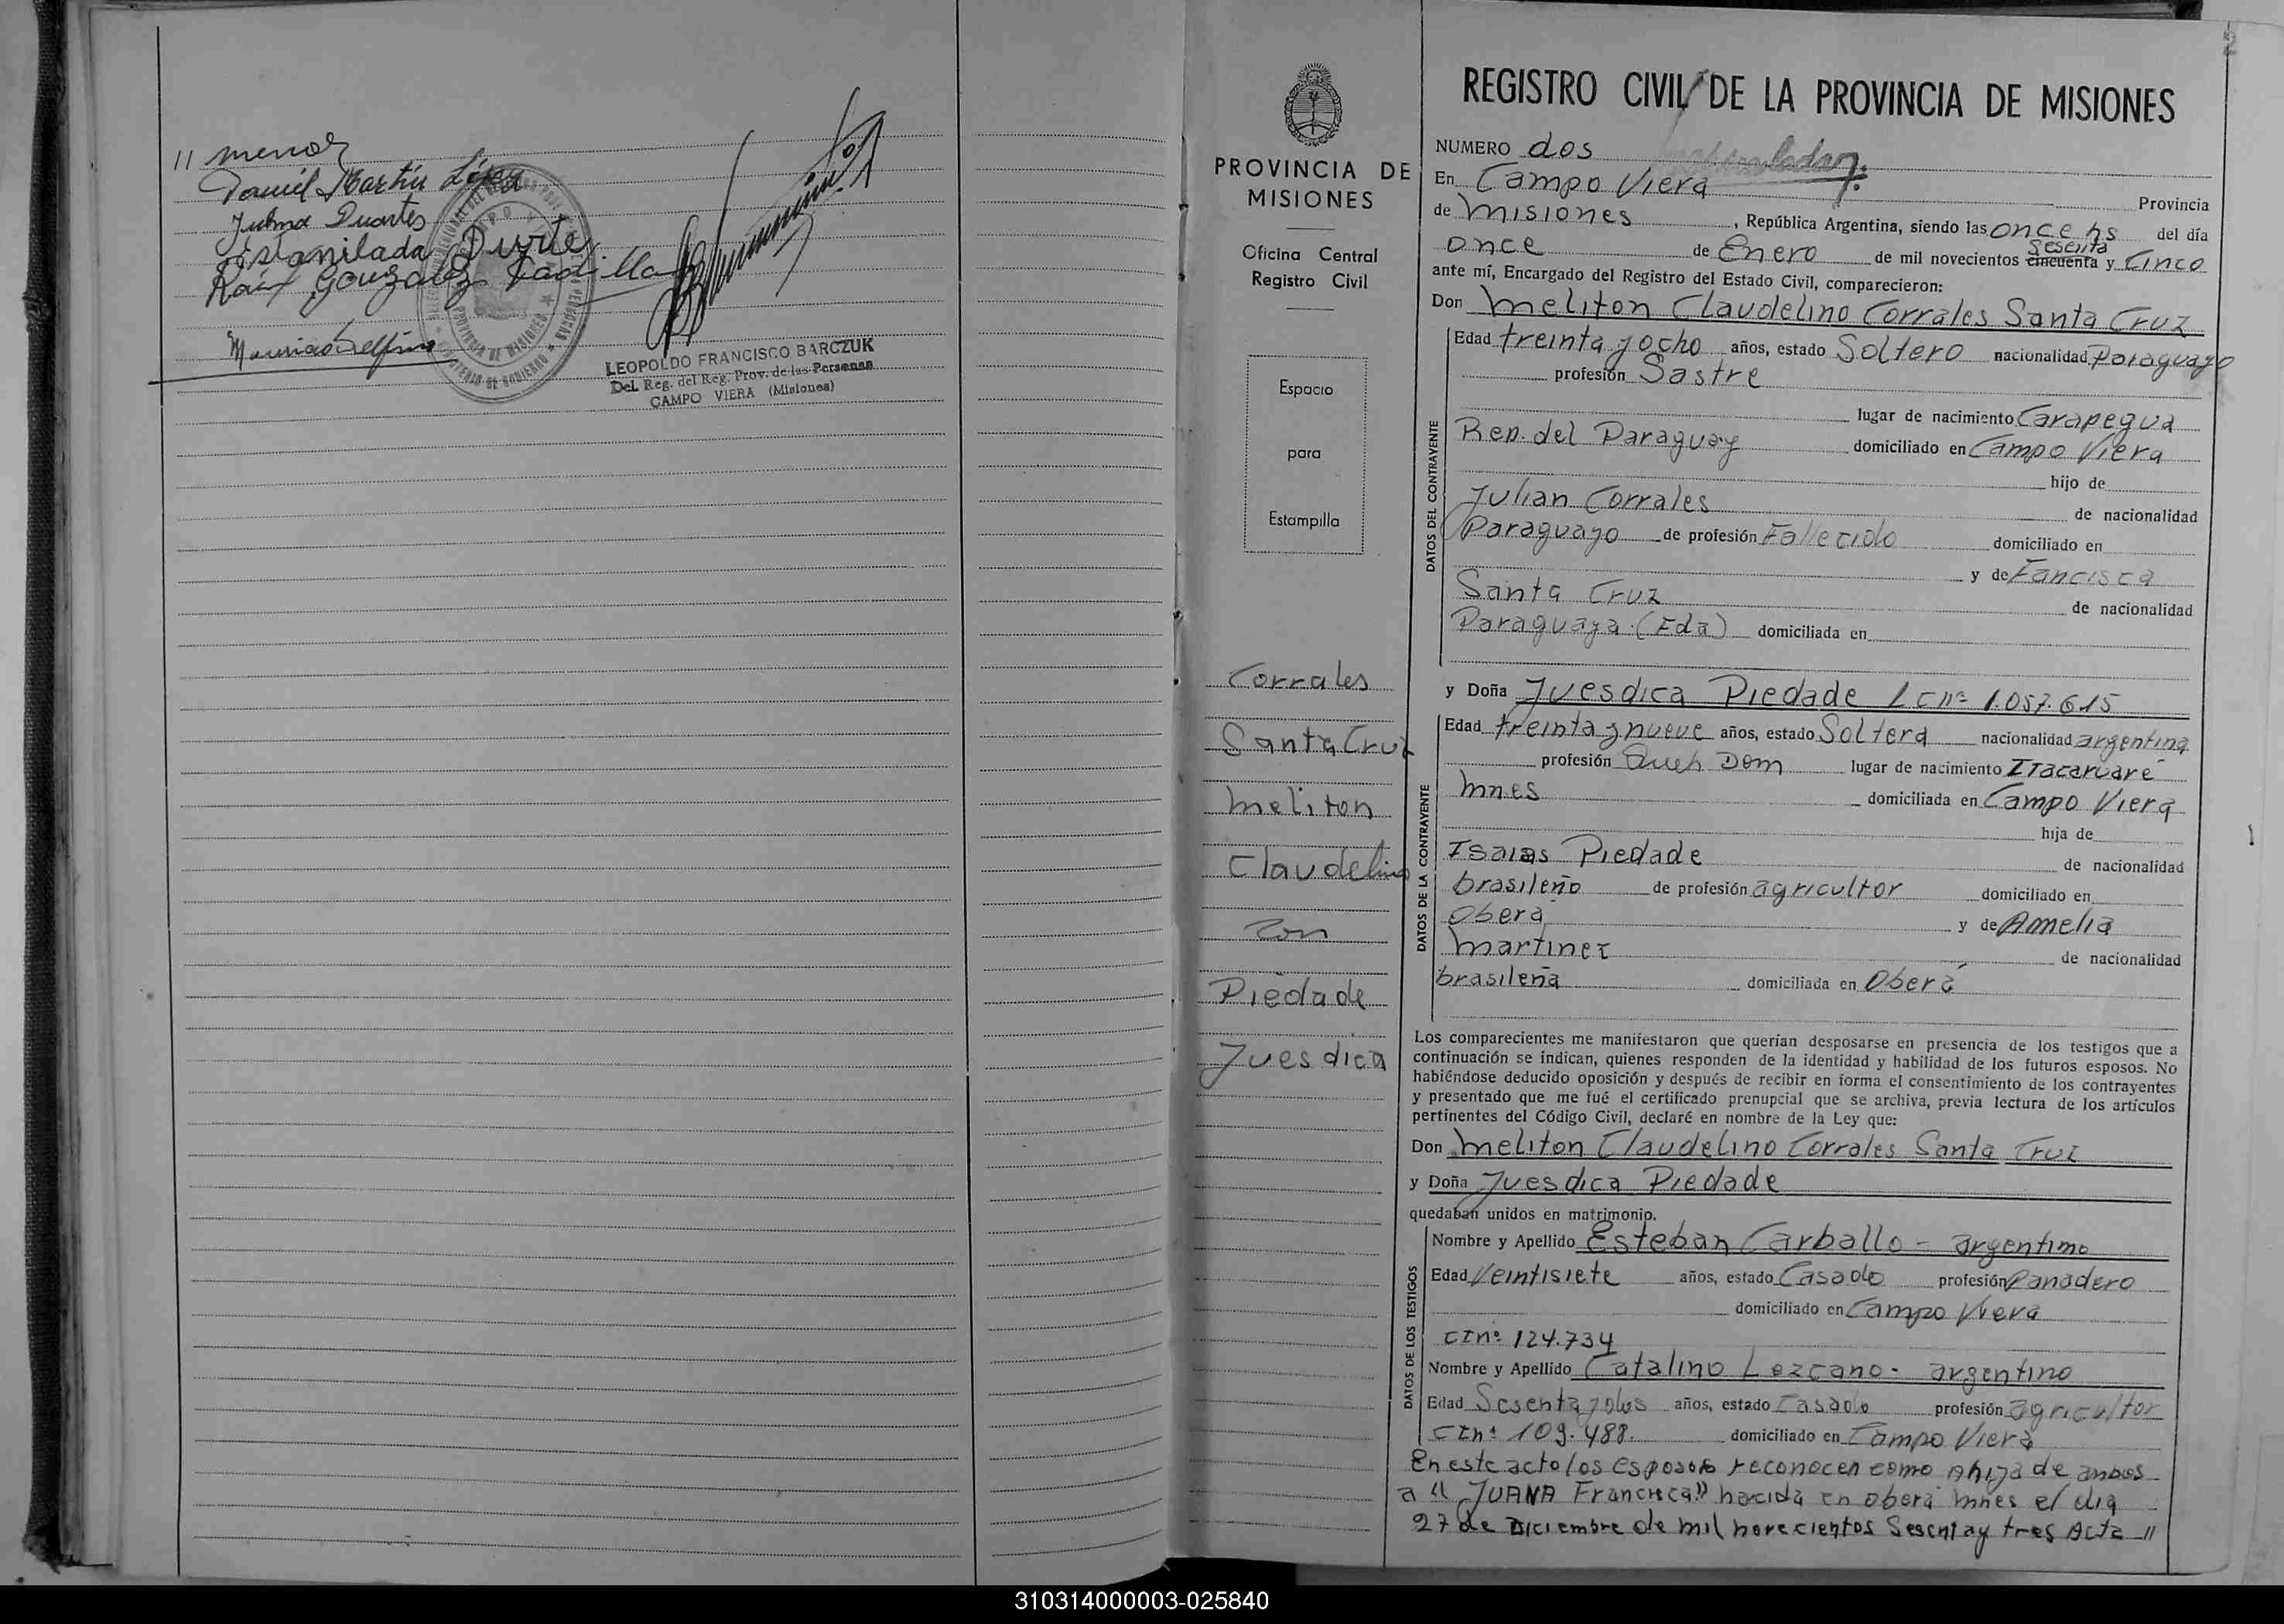 // menor
Daniel Martin López
Julma Duartes
Estanilada Durte
Raúl Gonzalez Padilla
Mauricio Delfino
LEOPOLDO FRANCISCO BARCZUK
Del. Reg. del Reg. Prov. de las Personas
CAMPO VIERA (Misiones)
PROVINCIA DE
MISIONES
Oficina Central
Registro Civil
Espacio
para
Estampilla
Corrales
Santa Cruz
Meliton
Claudelino
Con
Piedade
Juesdica
2
REGISTRO CIVIL DE LA PROVINCIA DE MISIONES
NUMERO dos
En Campo Viera Provincia
de Misiones, República Argentina, siendo las once hs del día
once de Enero de mil novecientos cincuenta sesenta y cinco
ante mí, Encargado del Registro del Estado Civil, comparecieron:
Don Meliton Claudelino Corrales Santa Cruz
Edad treinta y ocho años, estado Soltero nacionalidad Paraguayo
profesión Sastre
lugar de nacimiento Carapegua
Rep. del Paraguay domiciliado en Campo Viera
hijo de
Julian Corrales de nacionalidad
Paraguayo de profesión Fallecido domiciliado en
y de Fancisca
Santa Cruz de nacionalidad
Paraguaya (Fda) domiciliada en
DATOS DEL CONTRAYENTE
y Doña Juesdica Piedade L C nº 1.057.615
Edad treinta y nueve años, estado Soltera nacionalidad argentina
profesión Queh Dom lugar de nacimiento Itacaruaré
Mnes domiciliada en Campo Viera
hija de
Isaias Piedade de nacionalidad
brasileño de profesión agricultor domiciliado en
Obera y de Amelia
Martinez de nacionalidad
brasileña domiciliada en Oberá
DATOS DE LA CONTRAYENTE
Los comparecientes me manifestaron que querían desposarse en presencia de los testigos que a
continuación se indican, quienes responden de la identidad y habilidad de los futuros esposos. No
habiéndose deducido oposición y después de recibir en forma el consentimiento de los contrayentes
y presentado que me fué el certificado prenupcial que se archiva, previa lectura de los artículos
pertinentes del Código Civil, declaré en nombre de la Ley que:
Don Meliton Claudelino Corrales Santa Cruz
y Doña Juesdica Piedade
quedaban unidos en matrimonio.
Nombre y Apellido Esteban Carballo - argentino
Edad Veintisiete años, estado Casado profesión Panadero
domiciliado en Campo Viera
CI nº 124.734
Nombre y Apellido Catalino Lezcano - argentino
Edad Sesenta y dos años, estado Casado profesión agricultor
CI nº 109.488. domiciliado en Campo Viera
DATOS DE LOS TESTIGOS
En este acto los esposos reconocen como Ahija de ambos
a "JUANA Francisca" nacida en oberá Mnes el dia
27 de Diciembre de mil novecientos Sesenta y tres Acta //
310314000003-025840